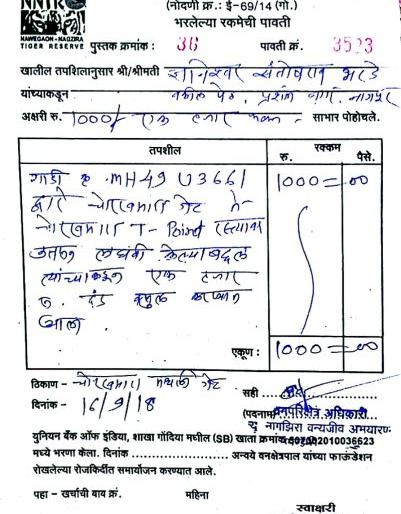 NNTR
(नोंदणी क्र.: ई-69/14 (गो.)
भरलेल्या रकमेची पावती
NAWEGAON-NAGZIRA
TIGER RESERVE
पुस्तक क्रमांक : 36 पावती क्र. 3523
खालील तपशिलानुसार श्री/श्रीमती ज्ञानेश्वर संतोषराव
यांच्याकडून वकील पेठ, प्रशांत नगर, नागपूर
अक्षरी रु. 1000/- एक हजार फक्त साभार पोहोचले.
तपशील
रक्कम
रु. पैसे.
गाडी क्र. MH49 U3661 1000=00
द्वारे चोरखमारा गेट ते
चोरखमारा T-Point रस्त्यावर
उतरुन लघवी केल्याबद्दल
त्यांच्याकडून एक हजार
रु. दंड वसुल करण्यात
आला.
एकूण : 1000=00
ठिकाण - चोरखमारा गेट
दिनांक - 16/9/18
सही
(पदनाम) वनपरिक्षेत्र अधिकारी
नागझिरा वन्यजीव अभयारण्य
युनियन बैंक ऑफ इंडिया, शाखा गोंदिया मधील (SB) खाता क्रमांक 2010036623
मध्ये भरणा केला. दिनांक अन्वये वनक्षेत्रपाल यांच्या फाऊंडेशन
रोखलेल्या रोजकिर्दीत समायोजन करण्यात आले.
पहा - खर्चाची बाय क्रं. महिना
स्वाक्षरी